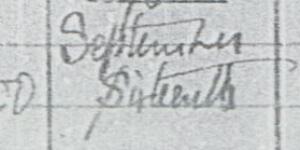 September
Sixteenth